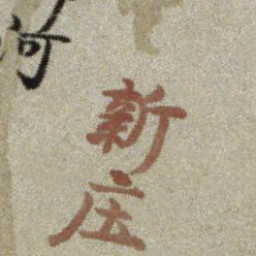 河
新庄